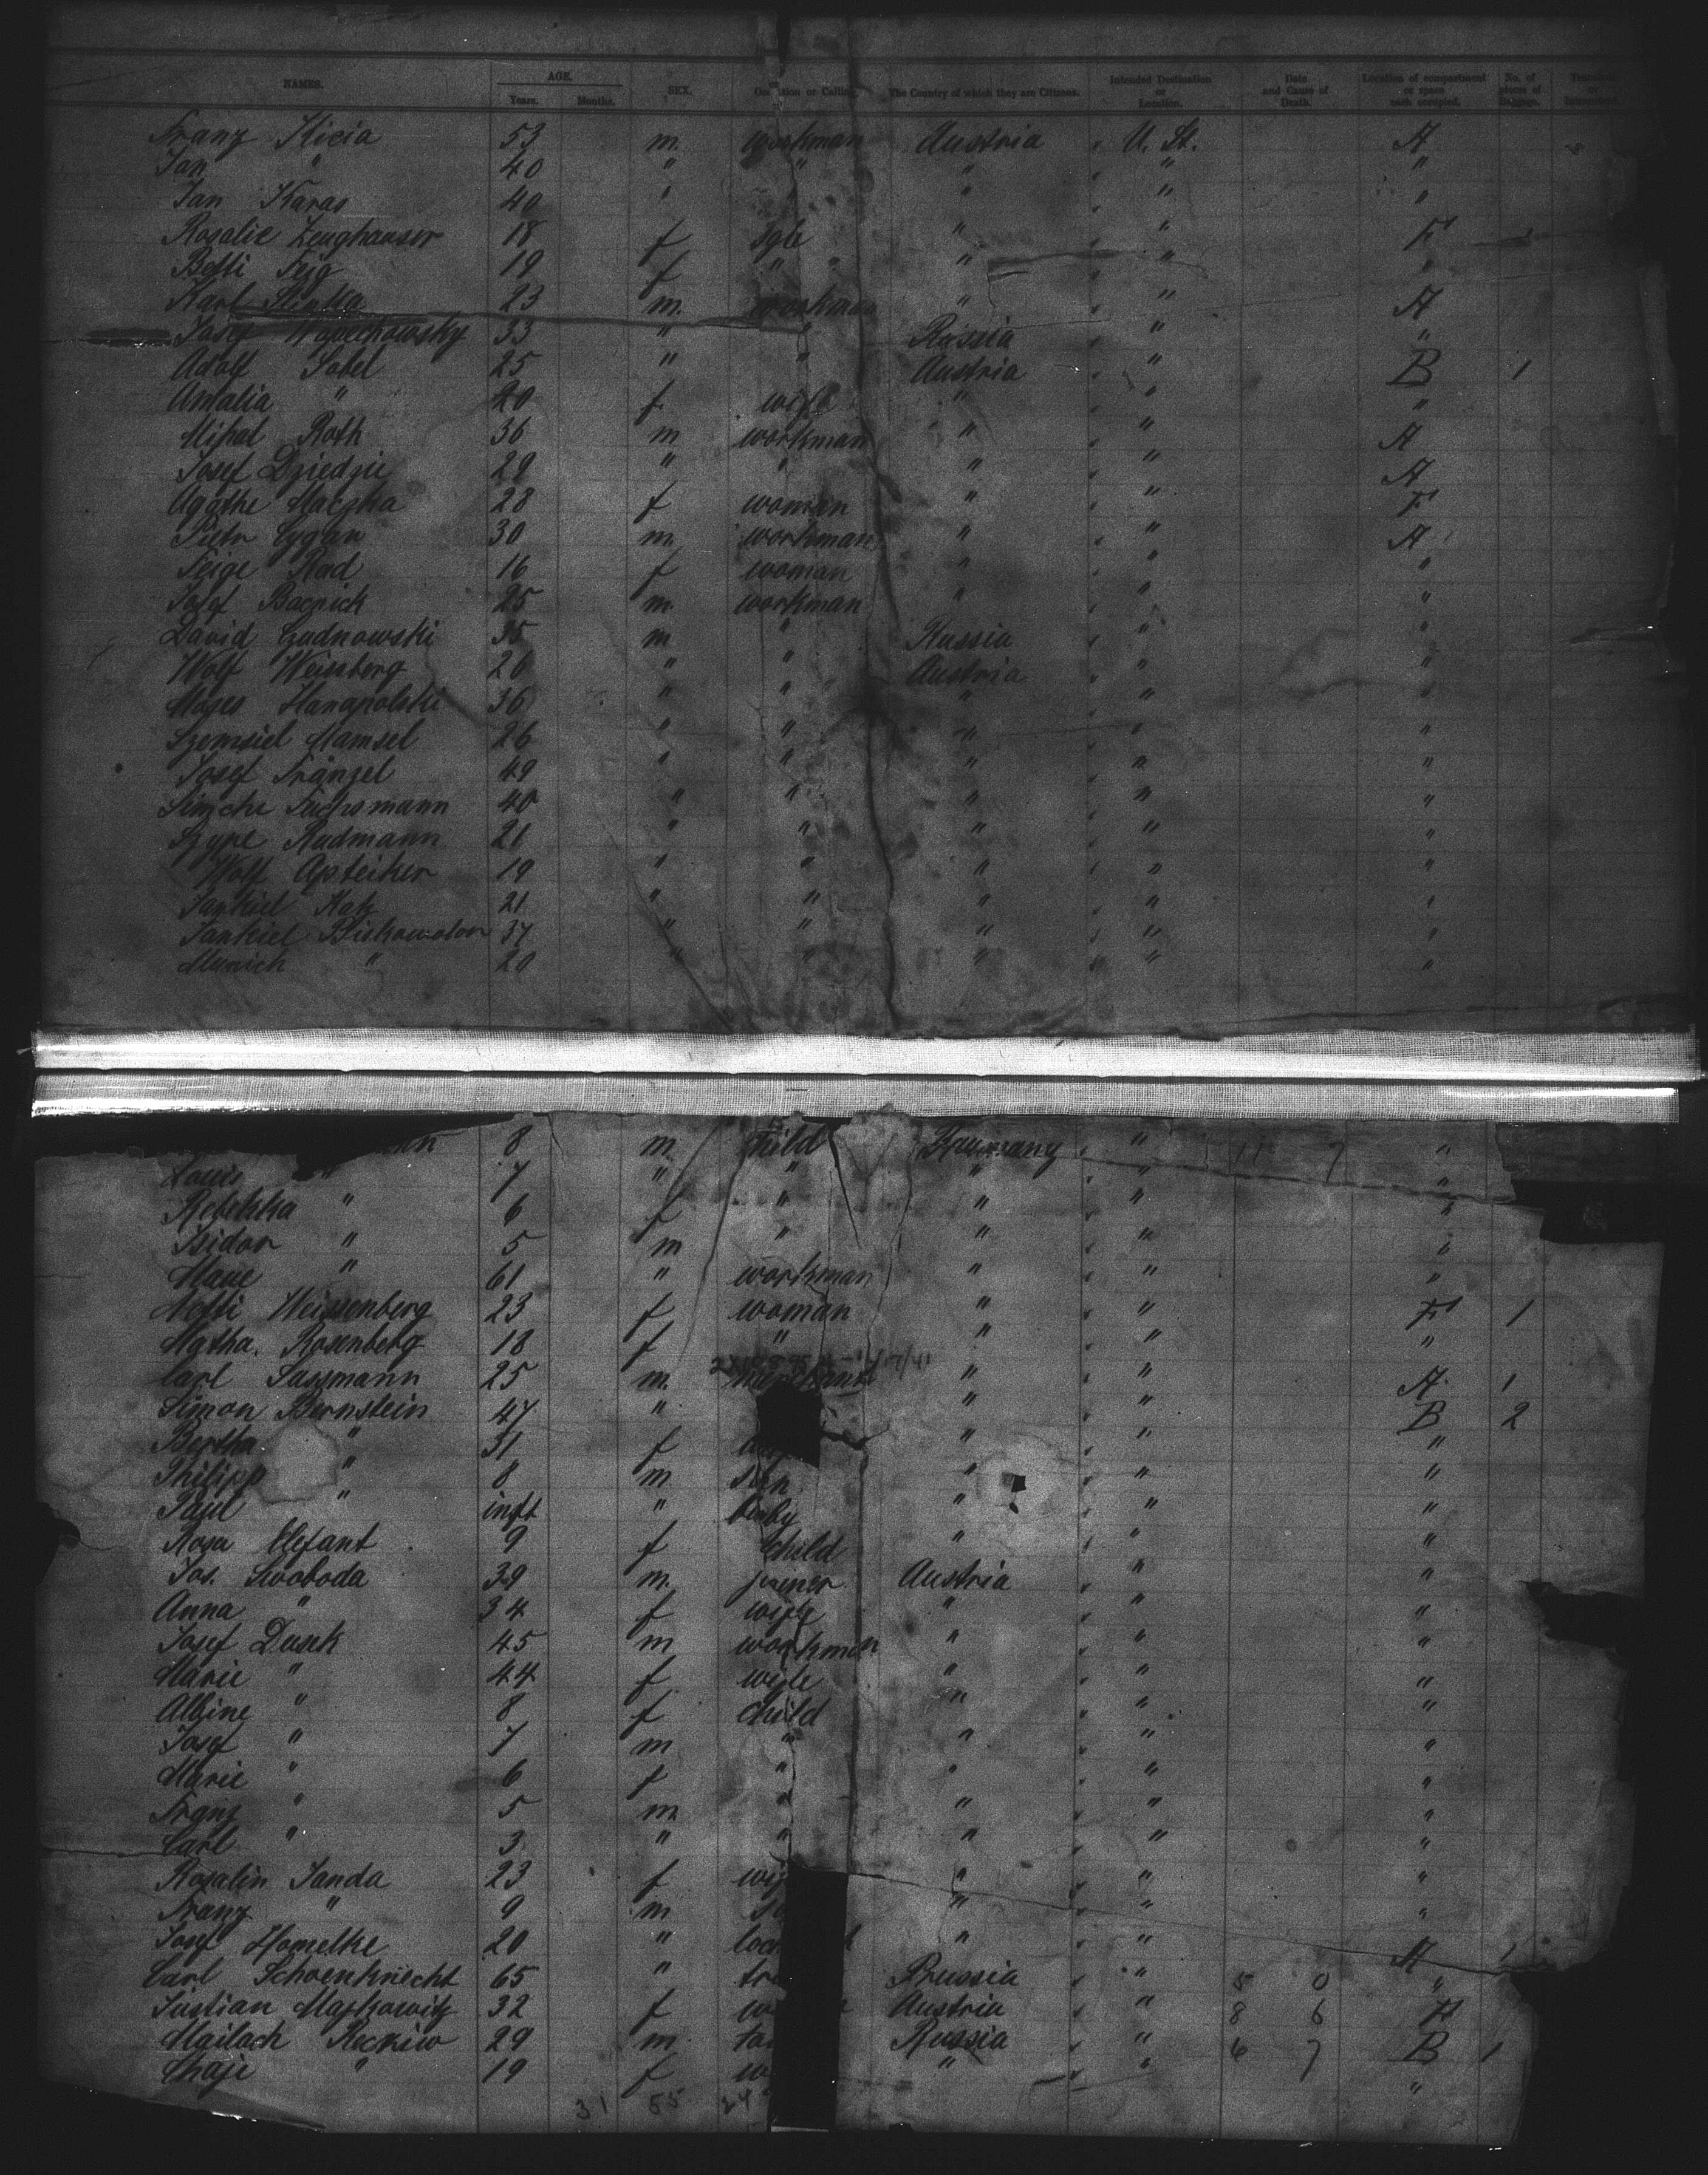 NAMES. AGE. Years. Months. SEX. Occupation or Calling. The Country of which they are Citizens. Intended Destination or Location. Date and Cause of Death. Location of compartment or space each occupied. No. of pieces of Baggage.
Franz Kicia 53 m. workman Austria " U. St. A
Jan " 40 " " " " "
Jan Karas 40 " " " "
Rosalie Zeughauser 18 f sgle " " F
Betti Feig 19 f " " " "
Karl 23 m. workman " " A
Josef 33 " " Russia " "
Adolf Sobel 25 " " Austria " B 1
Amalia " 20 f. wife " " "
Mihal Roth 36 m workman " " A
Josef Dziedzic 29 " " " " A
Agathe 28 f woman " " F
Pietr Cygan 30 m. workman " " A
Feige Rad 16 f woman " " "
Josef Bacnick 25 m. workman " " "
David Gudnowski 35 m " Russia " "
Wolf Weissberg 26 " " Austria " "
Moses Hanapolski 36 " " " " "
Szemsiel Mamsel 26 " " " " "
Josef Fränzel 49 " " " " "
Simche Fuchsmann 40 " " " " "
Szype Rudmann 21 " " " " "
Wolf Apteiker 19 " " " " "
Jankiel Katz 21 " " " " "
Jankiel 37 " " " " "
Munich " 20 " " " " "
8 m child " "
Louis " 7 " " " " "
Rebekka " 6 f " " " "
Isidor " 5 m " " " "
" 61 " workman " " "
Netti Weissenberg 23 f woman " " F 1
Martha Rosenberg 18 f " " " "
Carl Sassmann 25 m. " " A 1
Simon Bernstein 47 " " " B 2
Bertha " 31 f " " "
Philipp " 8 m son " " "
Paul " inft " baby " " "
Rosa Elefant 9 f child " " "
Jos. Swoboda 39 m. joiner Austria " "
Anna " 34 f wife " " "
Josef Dusek 45 m workman " " "
Marie " 44 f wife " " "
Albine " 8 f child " " "
Josef " 7 m " " " "
Marie " 6 f " " " "
Franz " 5 m. " " " "
Carl " 3 " " " " "
Rosalin Janda 23 f " " "
Franz " 9 m " " "
Josef Homelke 20 " " " A 1
Carl Schoenknecht 65 " Prussia " 5 0 "
Justian Markowitz 32 f Austria " 8 6 F
Mailach Ruckiw 29 m Russia " 6 7 B 1
Chaje " 19 f " " "
31 55 24